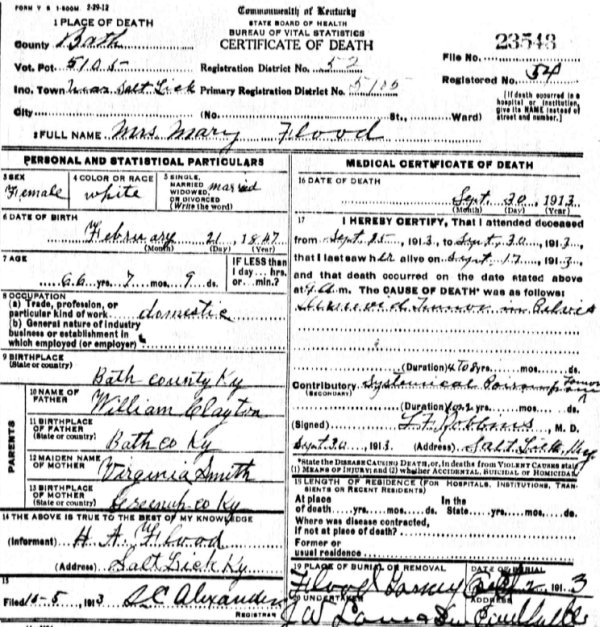 FORM V S 1-500M 2-29-12
Commonwealth of Kentucky
STATE BOARD OF HEALTH
BUREAU OF VITAL STATISTICS
CERTIFICATE OF DEATH
1 PLACE OF DEATH
County Bath
Vot. Pct. 5105
Inc. Town near Salt Lick
City
Registration District No. 52
Primary Registration District No. 5105
(No. St., Ward)
File No. 23543
Registered No. 54
[If death occurred in a
hospital or institution,
give its NAME instead of
street and number.]
2 FULL NAME Mrs. Mary Flood
PERSONAL AND STATISTICAL PARTICULARS
3 SEX Female
4 COLOR OR RACE white
5 SINGLE, MARRIED WIDOWED, OR DIVORCED (Write the word) married
6 DATE OF BIRTH
February 21, 1847
(Month) (Day) (Year)
7 AGE
66 yrs. 7 mos. 9 ds.
IF LESS than
1 day... hrs.
or... min.?
8 OCCUPATION
(a) Trade, profession, or
particular kind of work domestic
(b) General nature of industry
business or establishment in
which employed (or employer)
9 BIRTHPLACE
(State or country)
Bath county Ky
PARENTS
10 NAME OF FATHER William Clayton
11 BIRTHPLACE OF FATHER (State or country) Bath co Ky
12 MAIDEN NAME OF MOTHER Virginia Smith
13 BIRTHPLACE OF MOTHER (State or country) Greenup co Ky
14 THE ABOVE IS TRUE TO THE BEST OF MY KNOWLEDGE
(Informant) H. A. Flood
(Address) Salt Lick Ky
15
Filed 10-5, 1913 S C Alexander
REGISTRAR
MEDICAL CERTIFICATE OF DEATH
16 DATE OF DEATH
Sept. 30, 1913
(Month) (Day) (Year)
17 I HEREBY CERTIFY, That I attended deceased
from Sept. 25, 1913, to Sept. 30, 1913,
that I last saw her alive on Sept. 17, 1913,
and that death occurred on the date stated above
at 4 a m. The CAUSE OF DEATH* was as follows:
in Pelvis
(Duration) yrs. mos. ds.
Contributory
(SECONDARY)
(Duration) yrs. mos. ds.
(Signed) Robbins, M. D.
Sept 30, 1913. (Address) Salt Lick, Ky
*State the DISEASE CAUSING DEATH, or, in deaths from VIOLENT CAUSES state
(1) MEANS OF INJURY; and (2) whether ACCIDENTAL, SUICIDAL or HOMICIDAL.
18 LENGTH OF RESIDENCE (FOR HOSPITALS, INSTITUTIONS, TRANSIENTS OR RECENT RESIDENTS)
At place In the
of death yrs. mos. ds. State yrs. mos. ds.
Where was disease contracted,
if not at place of death?
Former or
usual residence
19 PLACE OF BURIAL OR REMOVAL DATE OF BURIAL
Flood 2 1913
20 UNDERTAKER ADDRESS
J W